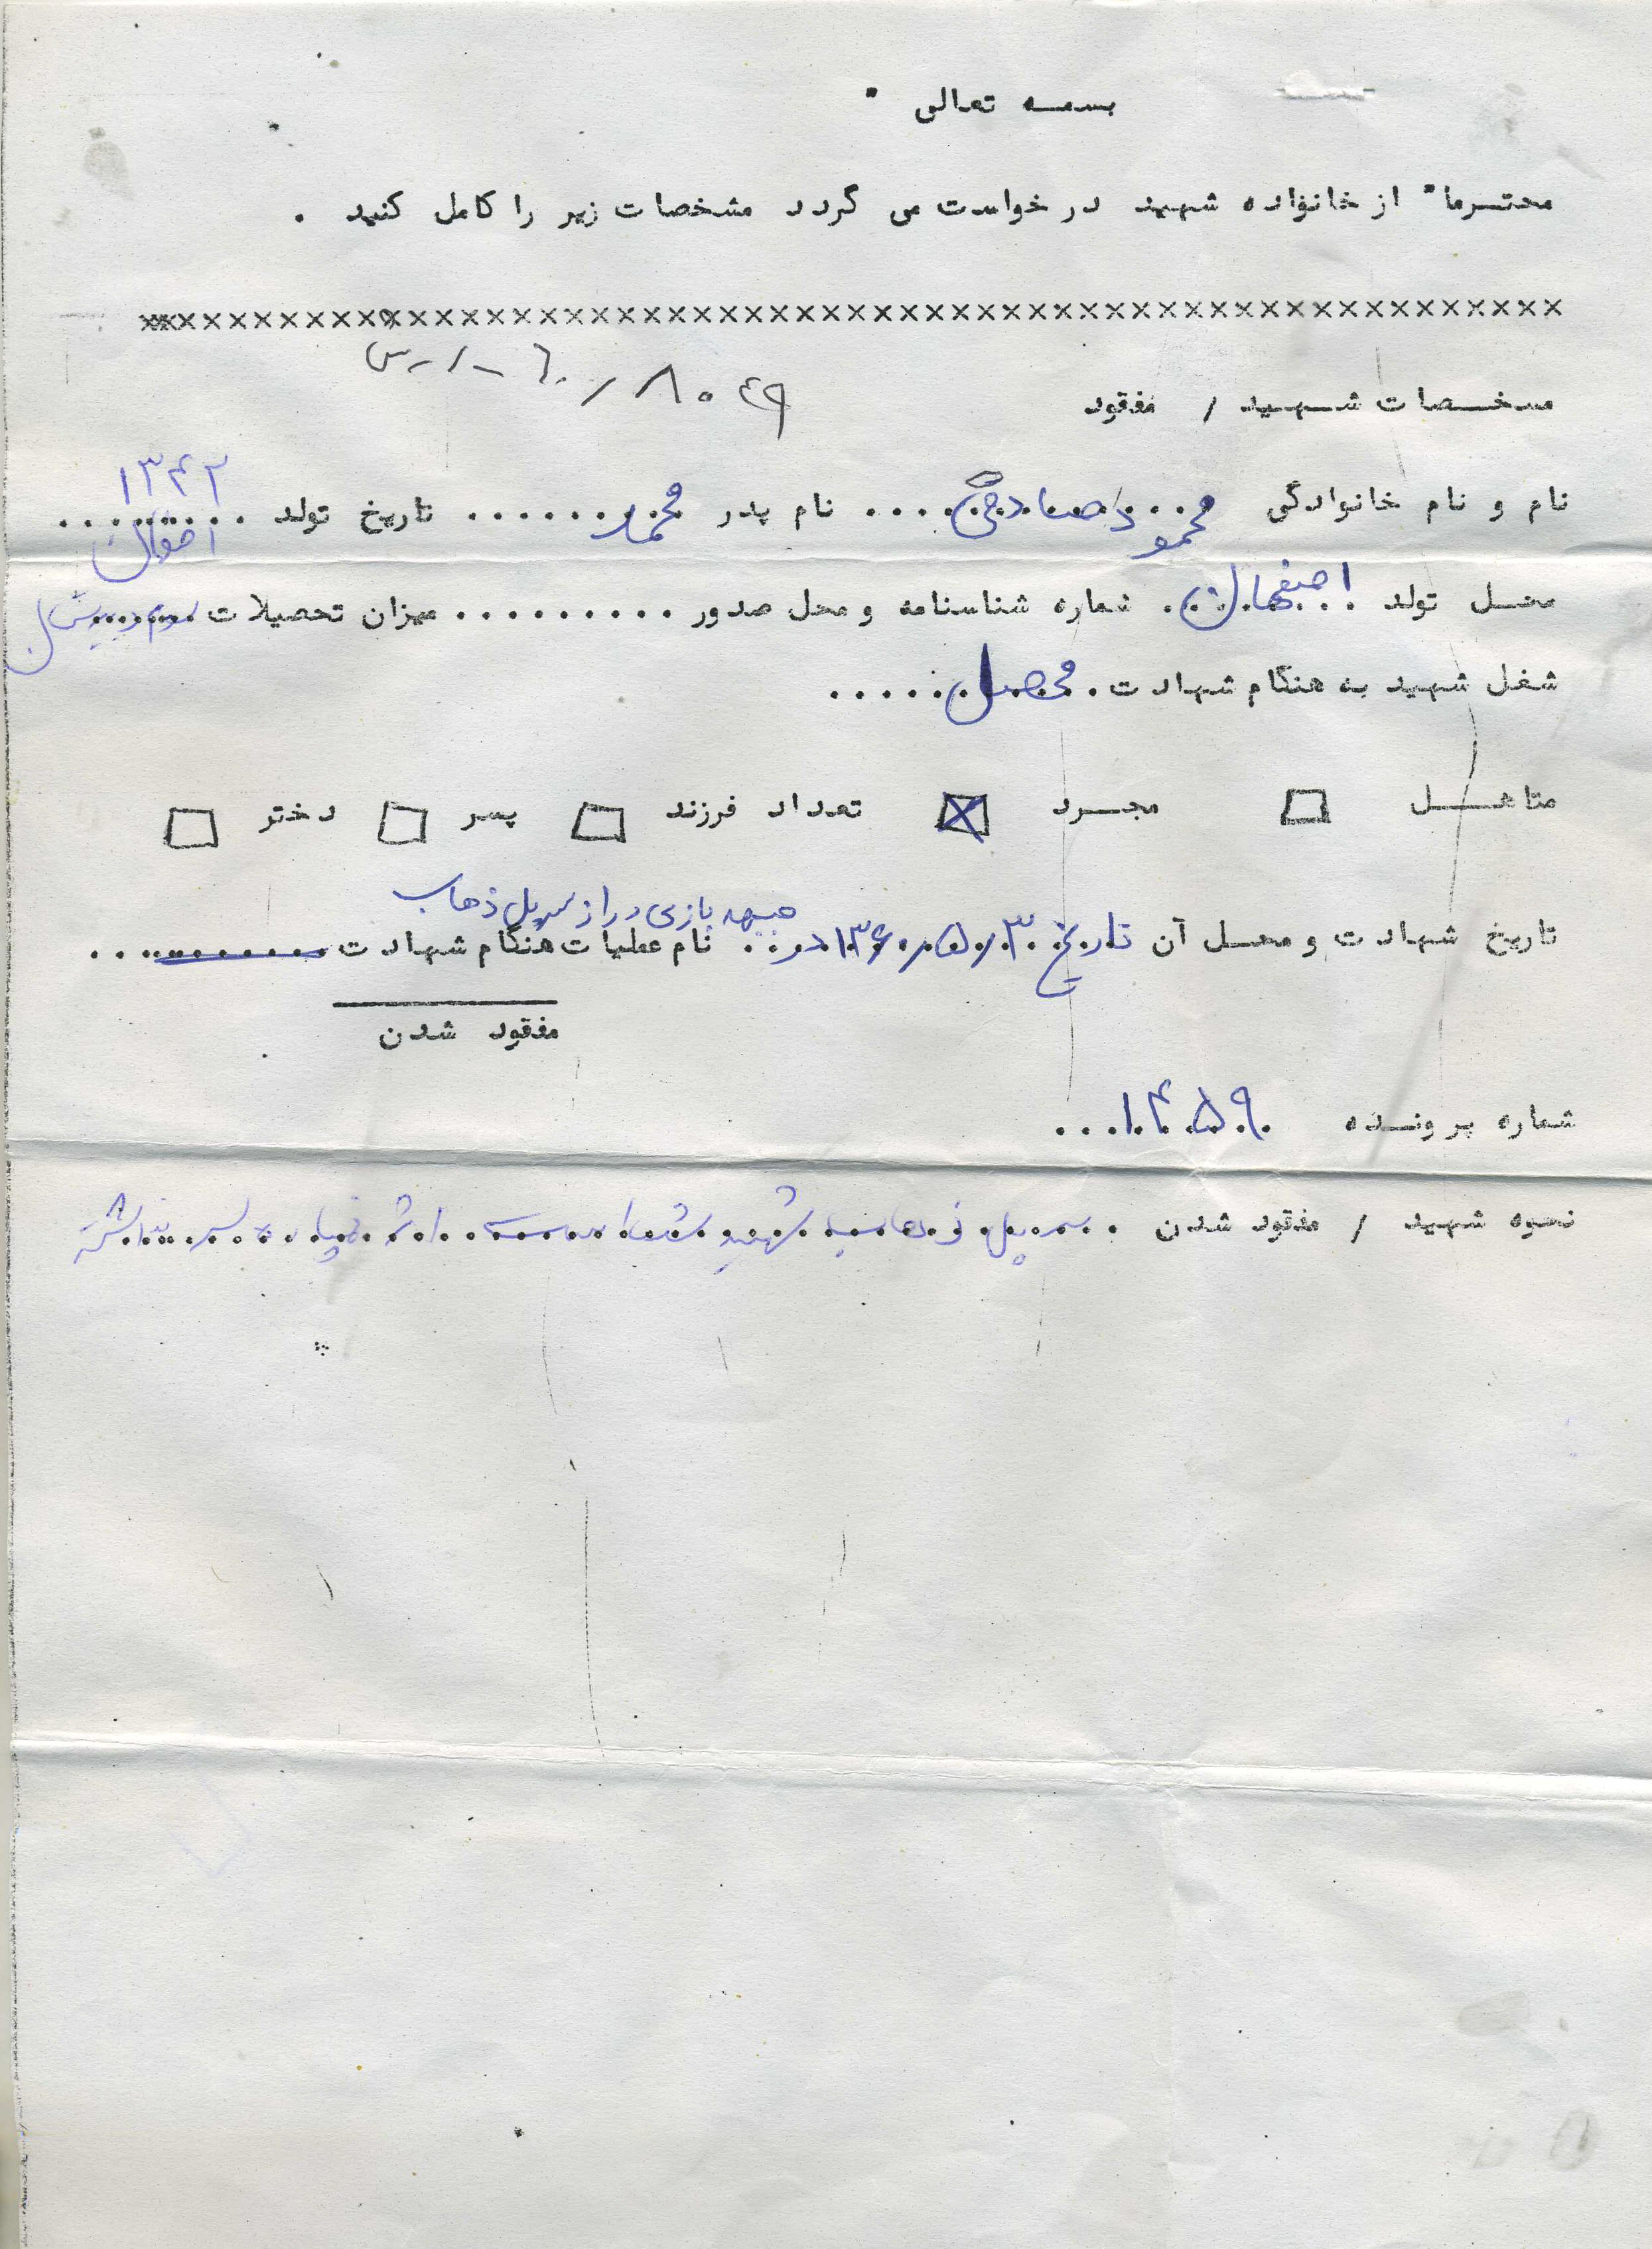 بسمه تعالی
محترما" از خانواده شهید درخواست می گردد مشخصات زیر را کامل کنید .
××××××××××××××××××××××××××××××××××××××××××××××××××××××
مشخصات شهید / مفقود
نام و نام خانوادگی محمود صادقی .... نام پدر محمد ....... تاریخ تولد ۱۳۴۲
محل تولد اصفهان . شماره شناسنامه و محل صدور ......... میزان تحصیلات سوم دبیرستان
شغل شهید به هنگام شهادت . محصل .....
متاهل □ مجرد ☒ تعداد فرزند □ پسر □ دختر □
تاریخ شهادت و محل آن تاریخ ۱۳۶۰/۵/۳ در جبهه بازی دراز سرپل ذهاب نام عملیات هنگام شهادت ..........
مفقود شدن
شماره پرونده ۱۴۵۹۰ ...
نحوه شهید / مفقود شدن . سرپل ذهاب شهید شده است اثر خمپاره